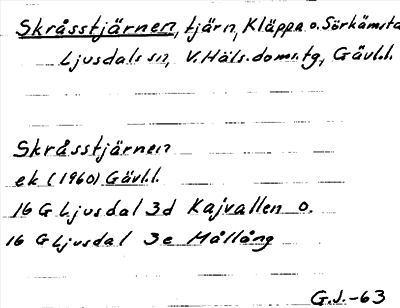 Skråsstjärnen, tjärn, Kläppa o. Sörkämsta
Ljusdals sn, V. Häls. doms.tg, Gävl.l.
Skråsstjärnen
ek (1960) Gävl.l.
16 G Ljusdal 3d Kajvallen o.
16 G Ljusdal 3e Mållång
G.J.-63